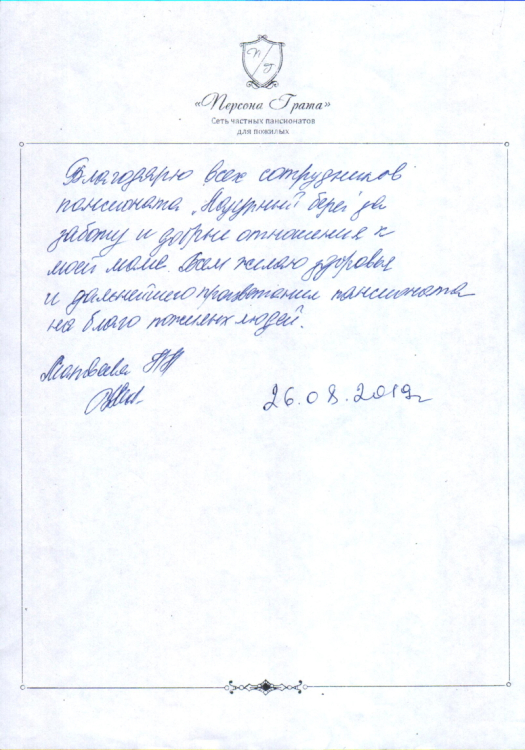 П Г
«Персона Грата»
Сеть частных пансионатов
для пожилых
Благодарю всех сотрудников
пансионата „Лазурный берег" за
заботу и добрые отношения к
моей маме. Всем желаю здоровья
и дальнейшего процветания пансионата
на благо пожилых людей.
Матвеева
26.08.2019г